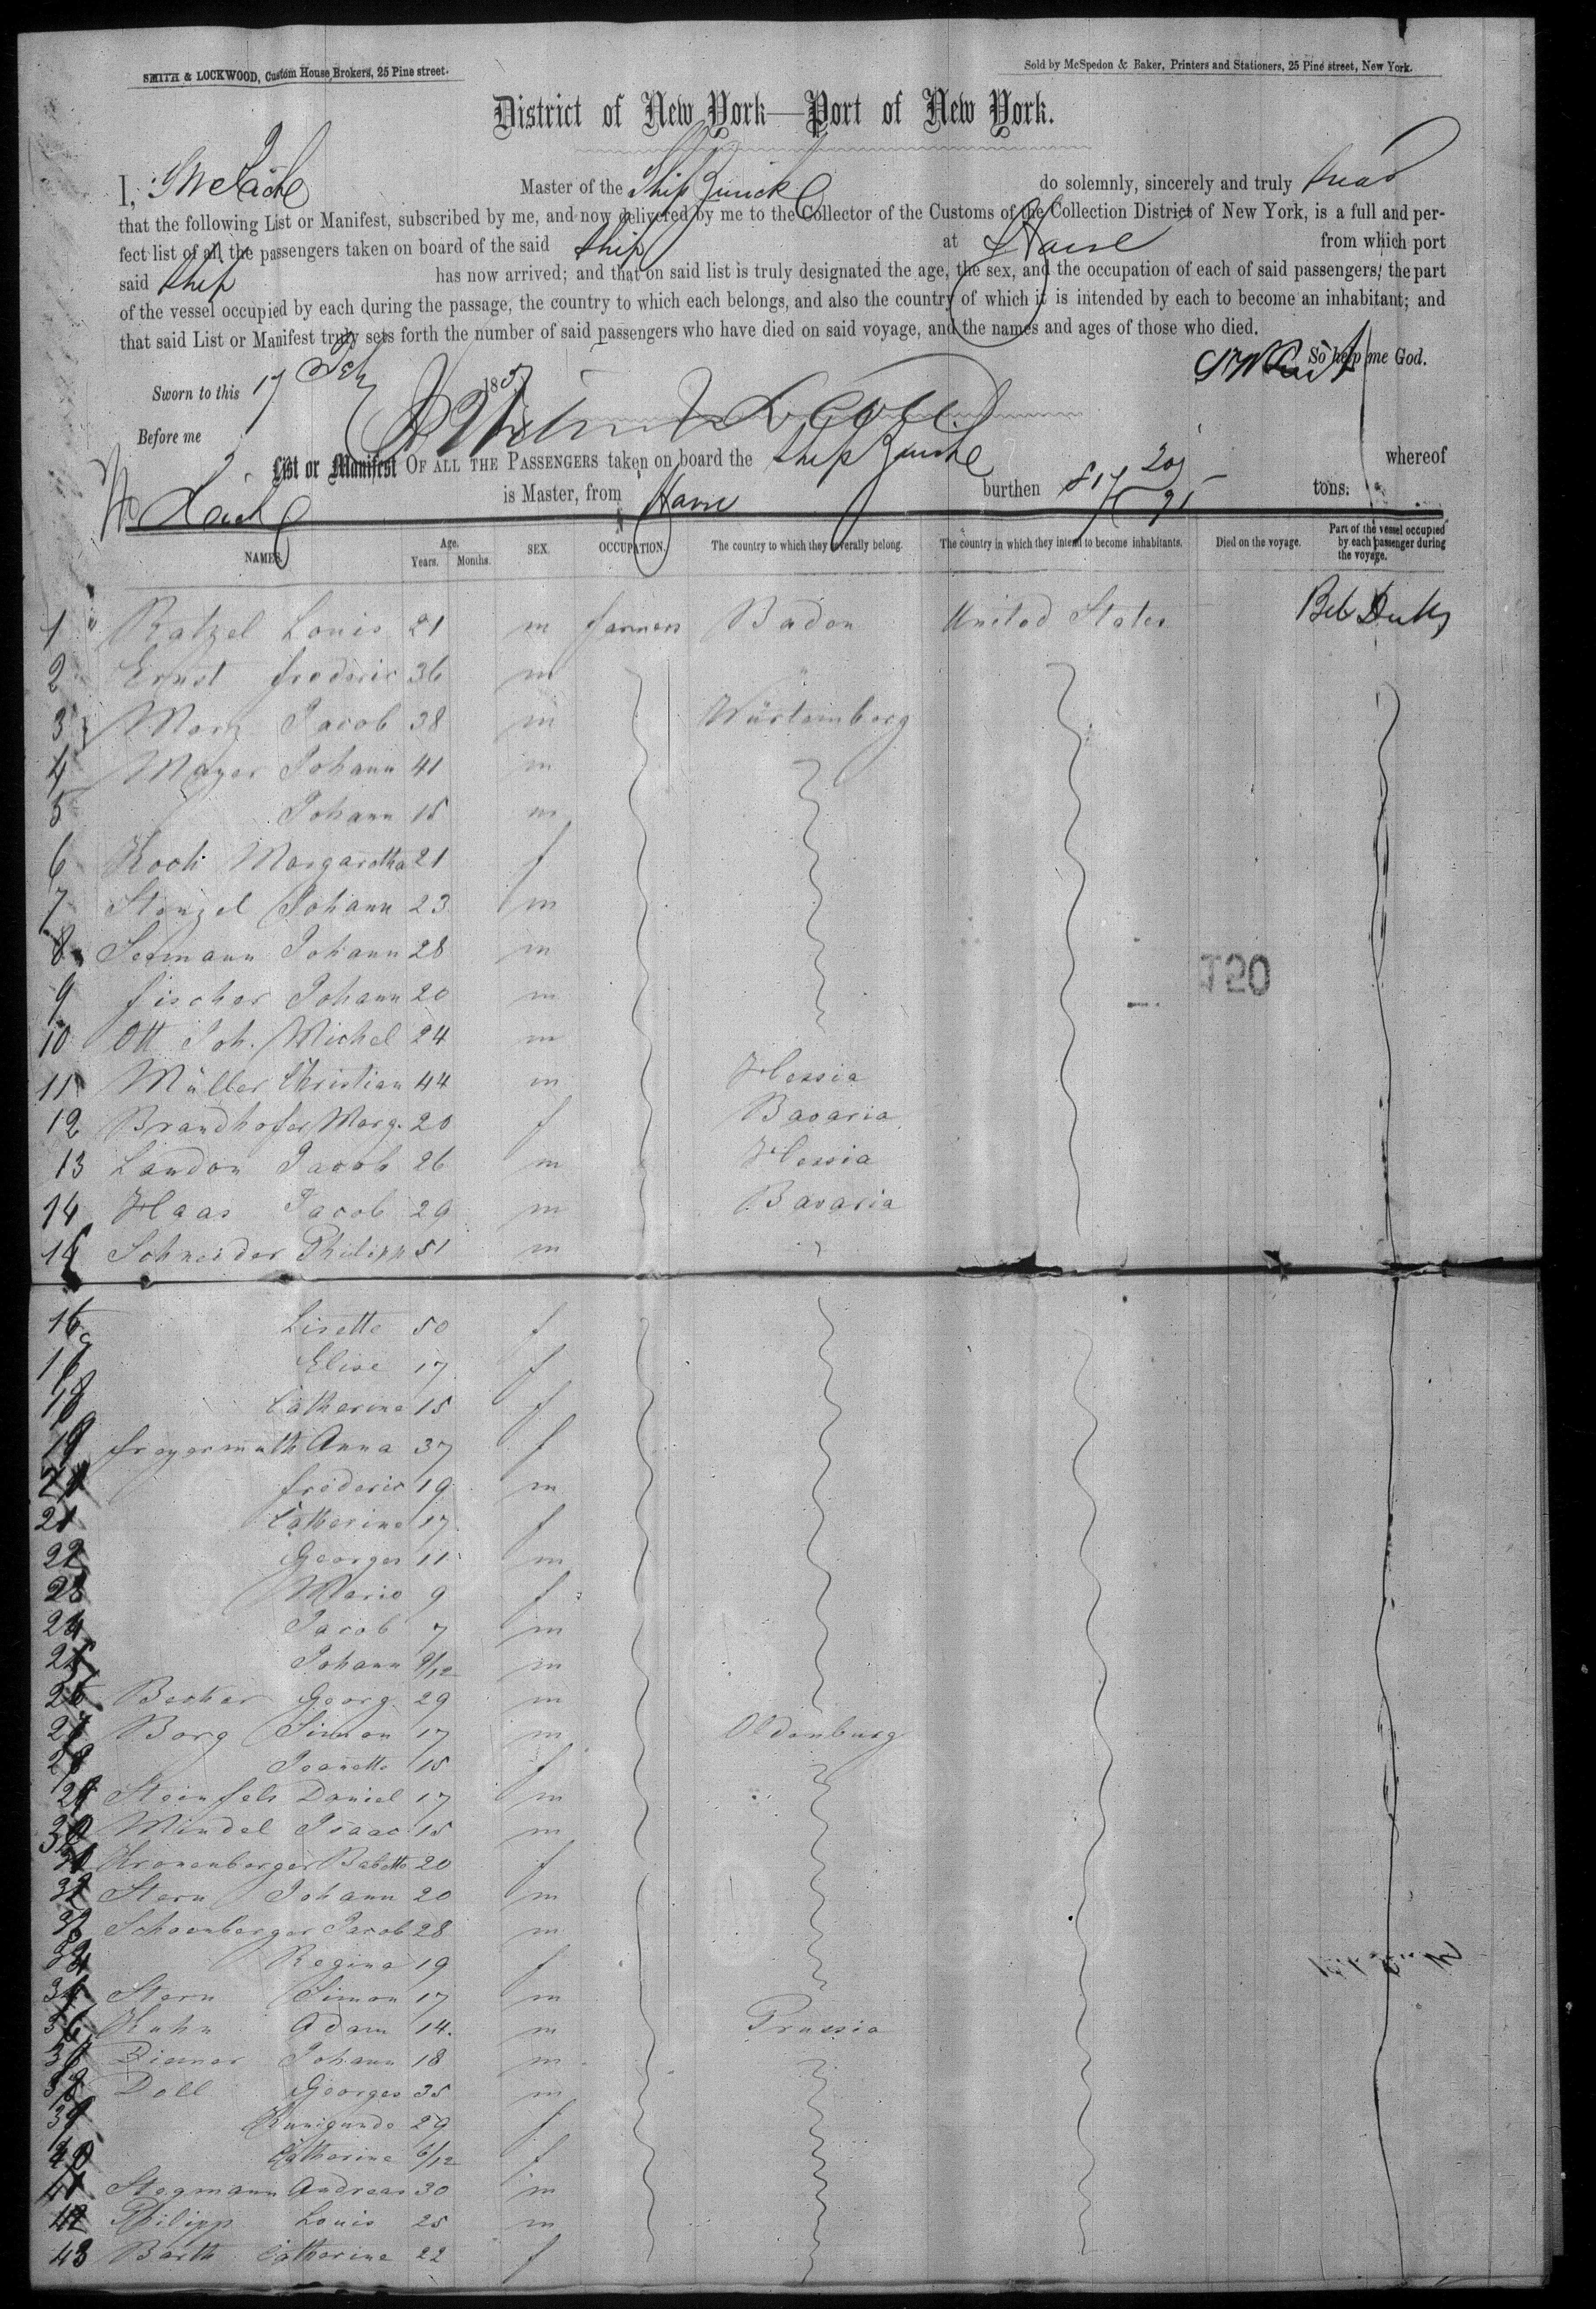 SMITH & LOCKWOOD, Custom House Brokers, 25 Pine street.
Sold by McSpedon & Baker, Printers and Stationers, 25 Pine street, New York.
District of New York—Port of New York.
I, Master of the Ship Zurich do solemnly, sincerely and truly swear
that the following List or Manifest, subscribed by me, and now delivered by me to the Collector of the Customs of the Collection District of New York, is a full and per-
fect list of all the passengers taken on board of the said Ship at Havre from which port
said Ship has now arrived; and that on said list is truly designated the age, the sex, and the occupation of each of said passengers, the part
of the vessel occupied by each during the passage, the country to which each belongs, and also the country of which it is intended by each to become an inhabitant; and
that said List or Manifest truly sets forth the number of said passengers who have died on said voyage, and the names and ages of those who died.
So help me God.
Sworn to this 17 185
Before me
List or Manifest OF ALL THE PASSENGERS taken on board the Ship Zurich whereof
is Master, from Havre burthen 817 20/95 tons.
NAMES. Age. Years. Months. SEX. OCCUPATION. The country to which they severally belong. The country in which they intend to become inhabitants. Died on the voyage. Part of the vessel occupied by each passenger during the voyage.
1 " Ratzel Louis 21 m farmers Baden United States
2 Ernst frederic 36 m "
3 Jacob 38 m Würtemberg
4 Mayer Johann 41 m
5 Johann 15 m
6 Koch Margaretha 21 f
7 Stenzel Johann 23 m
8 Johann 28 m
9 fischer Johann 20 m
10 Ott Joh. Michel 24 m
11 Müller Christian 44 m Hessia
12 Brandhofer Marg. 20 f Bavaria
13 Landon Jacob 26 m Hessia
14 Haas Jacob 29 m Bavaria
15 Schneider Philipp 51 m
T50
16 Lisette 50 f
17 Elise 17 f
18 Catherine 15 f
19 freyermuth Anna 37 f
20 frederic 19 m
21 Catherine 17 f
22 Georges 11 m
23 Marie 9 f
24 Jacob 7 m
25 Johann 9/12 m
26 Becker Georg 29 m
27 Berg Simon 17 m Oldenburg
28 Jeanette 15 f
29 Steinfels Daniel 17 m
30 Mindel Isaac 15 m
31 Kronenberger Babette 20 f
32 Stern Johann 20 m
33 Schoenberger Jacob 28 m
34 Regina 19 f
35 Stern Simon 17 m
36 Kuhn Adam 14. m Prussia
37 Diemer Johann 18 m
38 Doll Georges 35 m
39 Kunigunde 29 f
40 Catherine 6/12 f
41 Stegmann Andreas 30 m
42 Philipp Louis 25 m
43 Barth Catherine 22 f